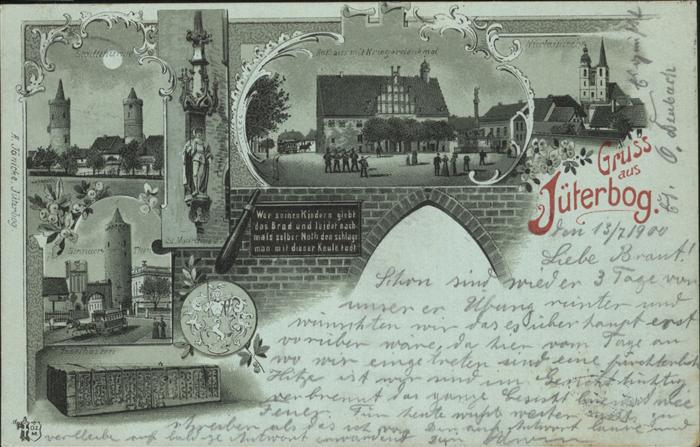 Stadttürme
Rathaus mit Kriegerdenkmal
Nicolaikirche
St. Mauritius
Zinnaer Thor
Tetzelkasten
Gruss
aus
Jüterbog.
Wer seinen Kindern giebt
das Brod und leidet nach-
mals selber Noth den schlage
man mit dieser Keule todt
den 13/7 1900
Liebe Braut!
Schon sind wieder 3 Tage von
unserer Übung runter und
wünschten wir das es überhaupt erst
vorüber wäre, da hier vom Tage an
wo wir eingetreten sind eine fürchterliche
Hitze ist wir sind im Gesicht tüchtig
verbrennt das ganze Gesicht wie
Feuer. Für heute weiter nichts zu
schreiben als das ich von Dir auf Antwort
verbleibe auf baldige Antwort